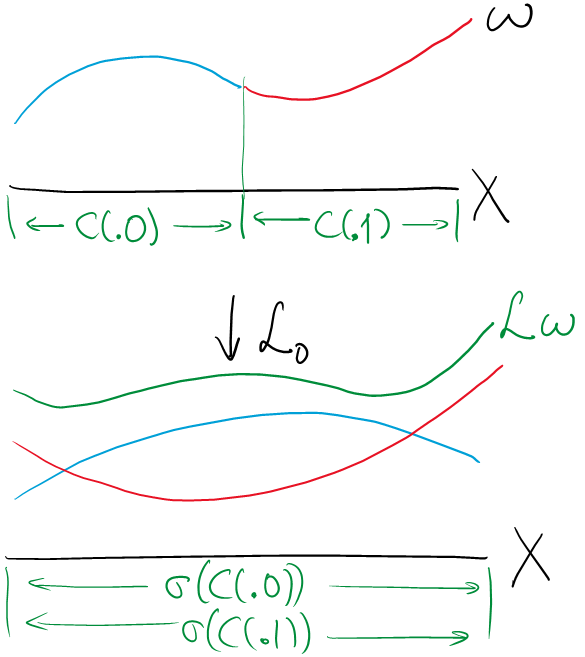 ω
X
C(.0) C(.1)
ℒ₀
ℒω
X
σ(C(.0))
σ(C(.1))